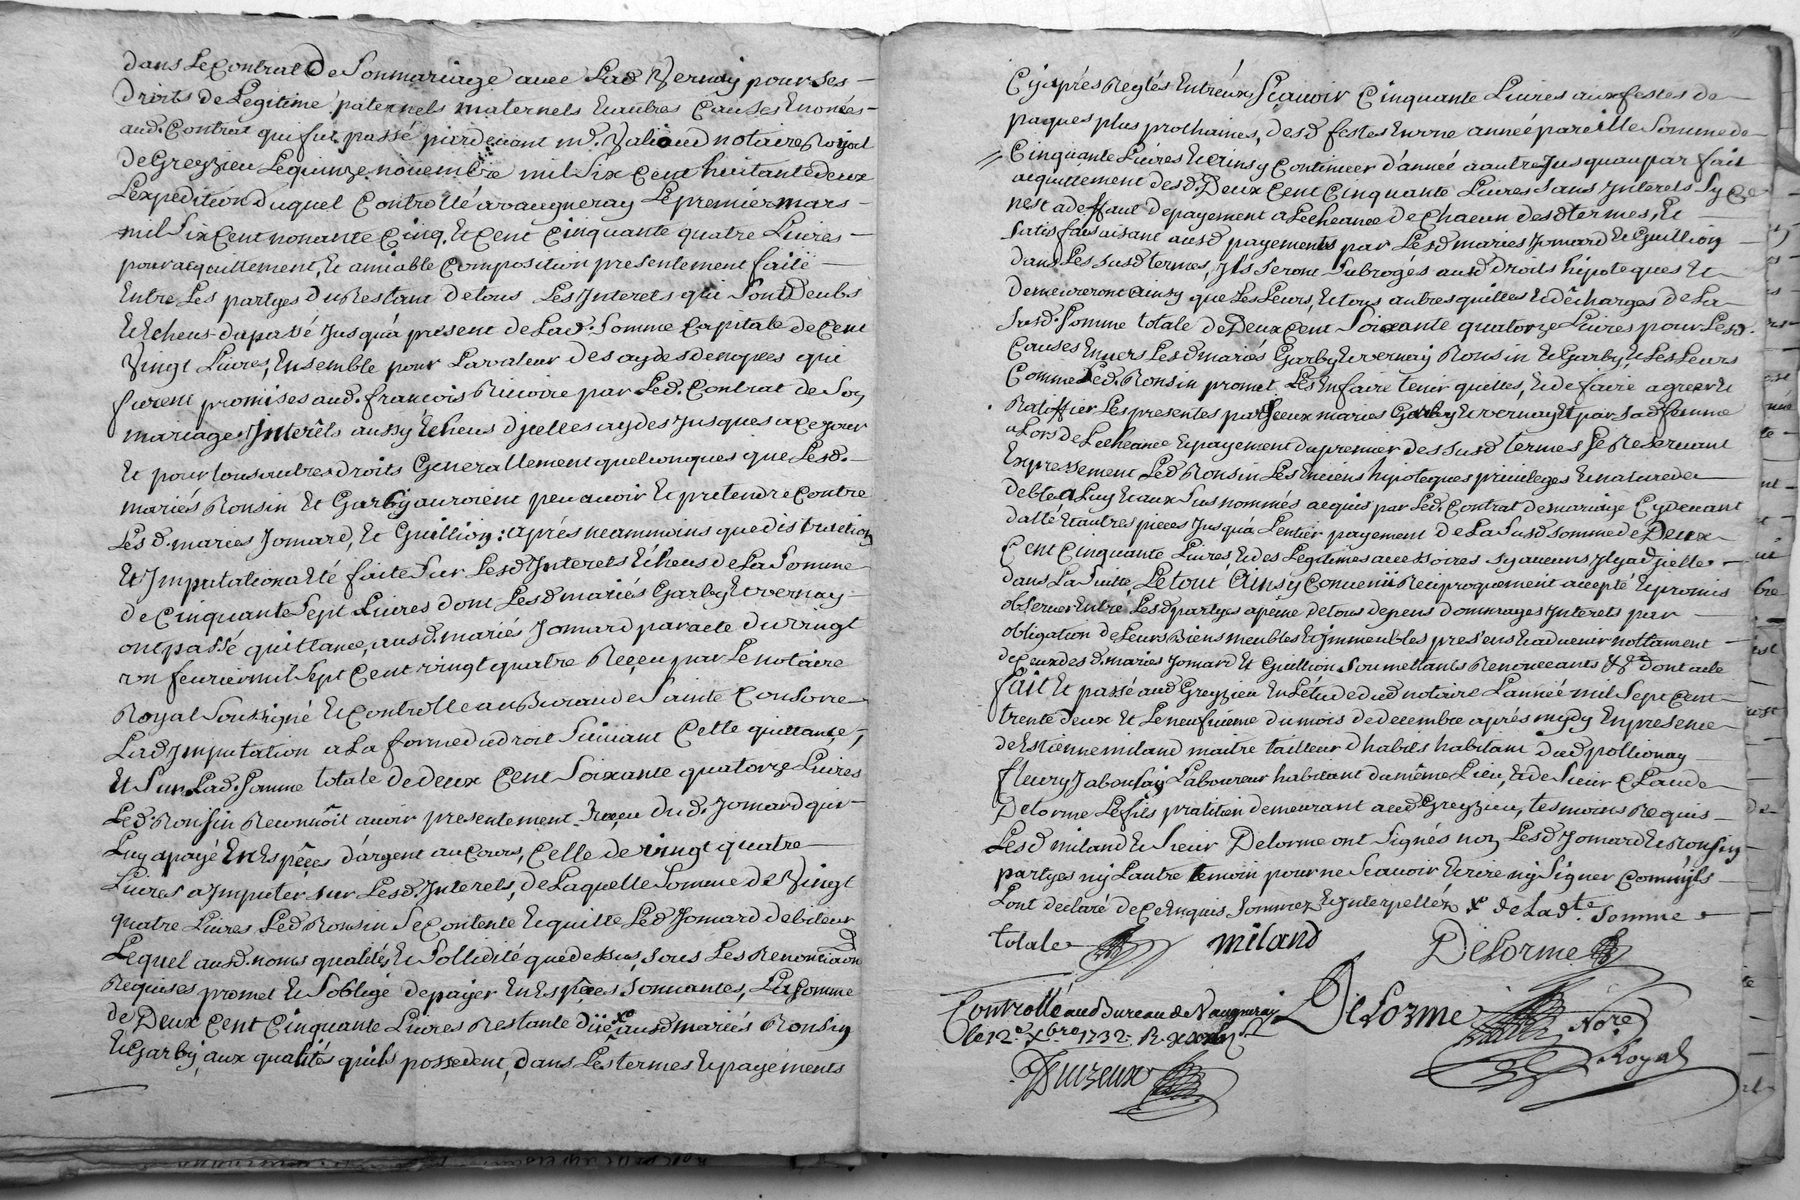 dans Le Contrat De Son mariage avec Lad Vernay pour ses
Droits de Legitime paternels maternels et autres Causes Enoncés
aud. Contrat qui fut passé pardevant me. notaire Royal
de Greyzieu Le quinze novembre mil six cent huitante deux
L'expedition Duquel Controllé a vaugneray Le premier mars
mil Six Cent nonante Cinq, Et Cent Cinquante quatre Livres
pour acquittement, Et amiable Composition presentement faitte
Entre Les partyes Du Restant De tous Les Interets qui Sont Deubs
Et Echeus du passé Jusqu'a présent de Lad. Somme Capitale de Cent
Vingt Livres, Ensemble pour La valeur des aydes de nopces qui
furent promises aud. francois par Led. Contrat de Son
mariage, Interêts aussy Echeus D'jcelles aydes Jusques a ce jour
Et pour tous autres droits Generallement quelconques que Lesd.
mariés Ronsin Et Garby auroient peu avoir Et pretendre Contre
Les d. maries Jomard, Et Guillion; après neammoins que distraction
Et Imputation a Eté faite Sur Lesd Interets Echeus de La Somme
de Cinquante Sept Livres dont Lesd mariés Garby Et vernay
ont passé quittance ausd. mariés Jomard par acte du vingt
un feuvrier mil Sept Cent vingt quatre Reçeu par Le notaire
Royal Soussigné Et Controlle au Bureau de Sainte Consorce
Lad Imputation a La forme du droit Suivant Cette quittance,
Et Sur Lad. Somme totale De deux Cent Soixante quatorze Livres
Led. Ronsin Reconnoît avoir presentement Reçeu dud. Jomard qui
Luy a payé En Espêces d'argent au Cours, Celle de vingt quatre
Livres a Imputer sur Lesd. Interets, de Laquelle Somme de Vingt
quatre Livres Led Ronsin Se Contente Et quitte Led Jomard debiteur
Lequel ausd. noms qualités, Et Sollidité que dessus, sous Les Renonciaôn
Requises promet Et S'oblige de payer En Espêces Sonnantes, La Somme
de Deux Cent Cinquante Livres Restante Diie x ausd mariés Ronsin
Et Garby, aux qualités qu'ils possedent, dans Les termes Et payements
Cy après Reglés Entr'eux, Sçavoir Cinquante Livres aux festes de
paques plus prochaines, desd festes En une année pareille Somme de
Cinquante Livres Et ainsy Continuer d'année a autre Jusqu'au parfait
acquittement desd. Deux Cent Cinquante Livres Sans Interets Sy Ce
n'est a deffaut de payement a L'echeance de Chacun desd termes, Et
Satisfaisant ausd payements par Lesd maries Jomard Et Guillion
dans Les susd termes, Ils Seront Subrogés ausd droits hipoteques Et
Demeureront ainsy que Les Leurs, Et tous autres quittes Et dêcharges de La
susd. Somme totale de Deux Cent Soixante quatorze Livres pour Lesd.
Causes Envers Lesd mariés Garby Et vernay Ronsin Et Garby, Et Les Leurs
Comme Led. Ronsin promet Les En faire tenir quittes, Et de faire agreer Et
Ratiffier Les presentes par Iceux maries Garby Et vernay Et par Sad femme
a Lors de L'echeance Et payement du premier des susd termes Se Reservant
Expressement Led Ronsin Les anciens hipoteques privileges Et nature de
debte a Luy Et aux Susnommés acquis par Led. Contrat de mariage Cy devant
datté Et autres pieces Jusqu'a L'entier payement de La Susd Somme de Deux
Cent Cinquante Livres, Et des Legitimes accessoires sy aucuns Il y a D'jcelles
dans La Suitte, Le tout Ainsy Convenü Reciproquement accepté Et promis
observer Entre Lesd partyes a peine de tous depens dommages Interets par
obligation de Leurs Biens meubles Et Immeubles presens Et advenir nottament
de Ceux desd. maries Jomard Et Guillion Soumettants Renonceants &c. dont acte
fait Et passé aud Greyzieu En L'étude dud notaire L'année mil Sept Cent
trente deux Et Le neufvieme du mois de decembre après mydy En presence
de Estienne miland maitre tailleur d'habits habitant dud pollionay
fleury Laboureur habitant du même Lieu, Et de Sieur Claude
Delorme Le fils praticien demeurant aud Greyzieu, tesmoins Requis
Lesd miland Et Sieur Delorme ont Signés non Lesd Jomard Et Ronsin
partyes ny L'autre temoin pour ne Sçavoir Ecrire ny Signer Comm'ils
L'ont declaré de Ce Enquis Sommez Et Interpellez x de Lad.te Somme
totale
miland
Delorme
Controllé au Bureau de Vaugneray
le 12e xbre 1732. R.
Delorme
Nore
Royal